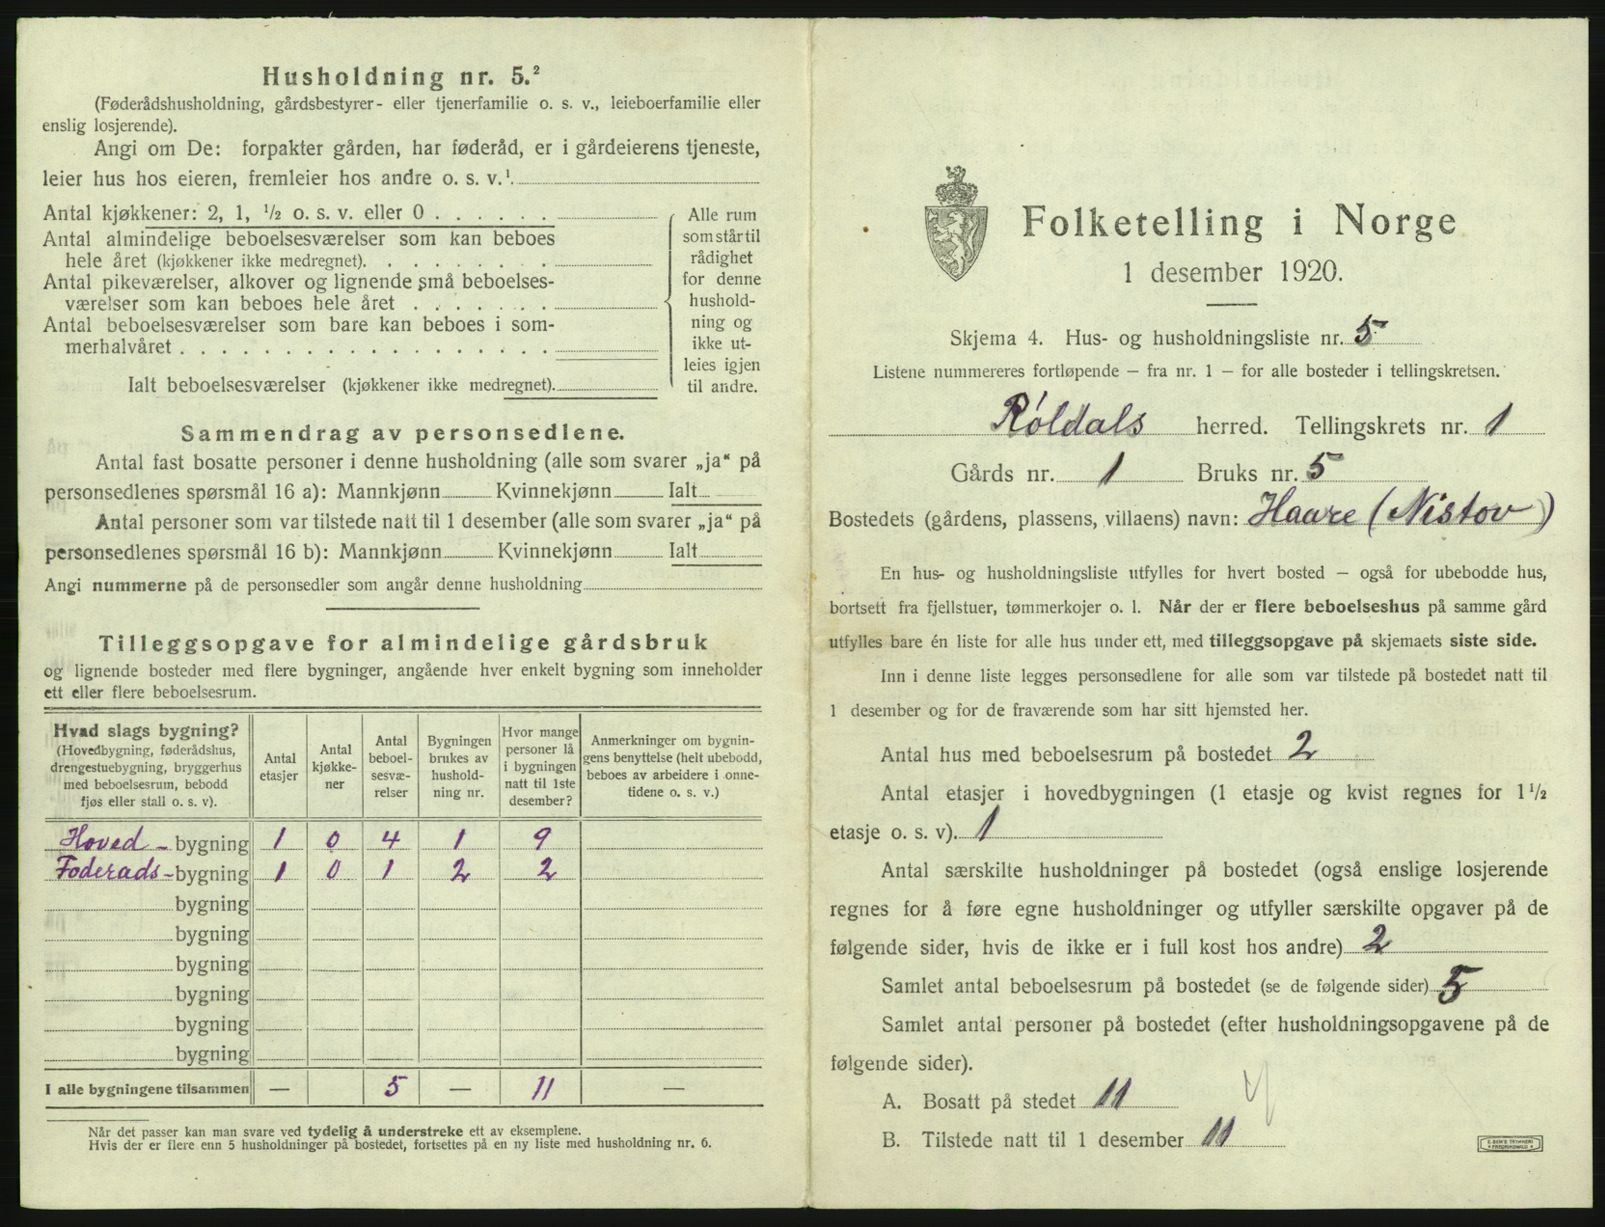 Husholdning nr. 5.²
(Føderådshusholdning, gårdsbestyrer- eller tjenerfamilie o. s. v., leieboerfamilie eller
enslig losjerende).
Angi om De: forpakter gården, har føderåd, er i gårdeierens tjeneste,
leier hus hos eieren, fremleier hos andre o. s. v.¹
Antal kjøkkener: 2, 1, ½ o. s. v. eller 0 . . . . . .
Antal almindelige beboelsesværelser som kan beboes
hele året (kjøkkener ikke medregnet). . . . . . . .
Antal pikeværelser, alkover og lignende små beboelses-
værelser som kan beboes hele året . . . . . . .
Antal beboelsesværelser som bare kan beboes i som-
merhalvåret . . . . . . . . . . . . . . . . . .
Ialt beboelsesværelser (kjøkkener ikke medregnet).
Alle rum
som står til
rådighet
for denne
hushold-
ning og
ikke ut-
leies igjen
til andre.
Sammendrag av personsedlene.
Antal fast bosatte personer i denne husholdning (alle som svarer „ja“ på
personsedlenes spørsmål 16 a): Mannkjønn Kvinnekjønn Ialt
Antal personer som var tilstede natt til 1 desember (alle som svarer „ja“ på
personsedlenes spørsmål 16 b): Mannkjønn Kvinnekjønn Ialt
Angi nummerne på de personsedler som angår denne husholdning
Tilleggsopgave for almindelige gårdsbruk
og lignende bosteder med flere bygninger, angående hver enkelt bygning som inneholder
ett eller flere beboelsesrum.
Hvad slags bygning?
(Hovedbygning, føderådshus,
drengestuebygning, bryggerhus
med beboelsesrum, bebodd
fjøs eller stall o. s. v).
Antal
etasjer
Antal
kjøkke-
ner
Antal
beboel-
sesvæ-
relser
Bygningen
brukes av
hushold-
ning nr.
Hvor mange
personer lå
i bygningen
natt til 1ste
desember?
Anmerkninger om bygnin-
gens benyttelse (helt ubebodd,
beboes av arbeidere i onne-
tidene o. s. v.)
Hoved - bygning 1 0 4 1 9
Föderads - bygning 1 0 1 2 2
bygning
bygning
bygning
bygning
bygning
bygning
I alle bygningene tilsammen — 5 — 11 —
Når det passer kan man svare ved tydelig å understreke ett av eksemplene.
Hvis der er flere enn 5 husholdninger på bostedet, fortsettes på en ny liste med husholdning nr. 6.
Folketelling i Norge
1 desember 1920.
Skjema 4. Hus- og husholdningsliste nr. 5
Listene nummereres fortløpende – fra nr. 1 – for alle bosteder i tellingskretsen.
Röldals herred. Tellingskrets nr. 1
Gårds nr. 1 Bruks nr. 5
Bostedets (gårdens, plassens, villaens) navn: Haare (Nistov)
En hus- og husholdningsliste utfylles for hvert bosted – også for ubebodde hus,
bortsett fra fjellstuer, tømmerkojer o. l. Når der er flere beboelseshus på samme gård
utfylles bare én liste for alle hus under ett, med tilleggsopgave på skjemaets siste side.
Inn i denne liste legges personsedlene for alle som var tilstede på bostedet natt til
1 desember og for de fraværende som har sitt hjemsted her.
Antal hus med beboelsesrum på bostedet 2
Antal etasjer i hovedbygningen (1 etasje og kvist regnes for 1½
etasje o. s. v). 1
Antal særskilte husholdninger på bostedet (også enslige losjerende
regnes for å føre egne husholdninger og utfyller særskilte opgaver på de
følgende sider, hvis de ikke er i full kost hos andre) 2
Samlet antal beboelsesrum på bostedet (se de følgende sider) 5
Samlet antal personer på bostedet (efter husholdningsopgavene på de
følgende sider).
A. Bosatt på stedet 11
B. Tilstede natt til 1 desember 11